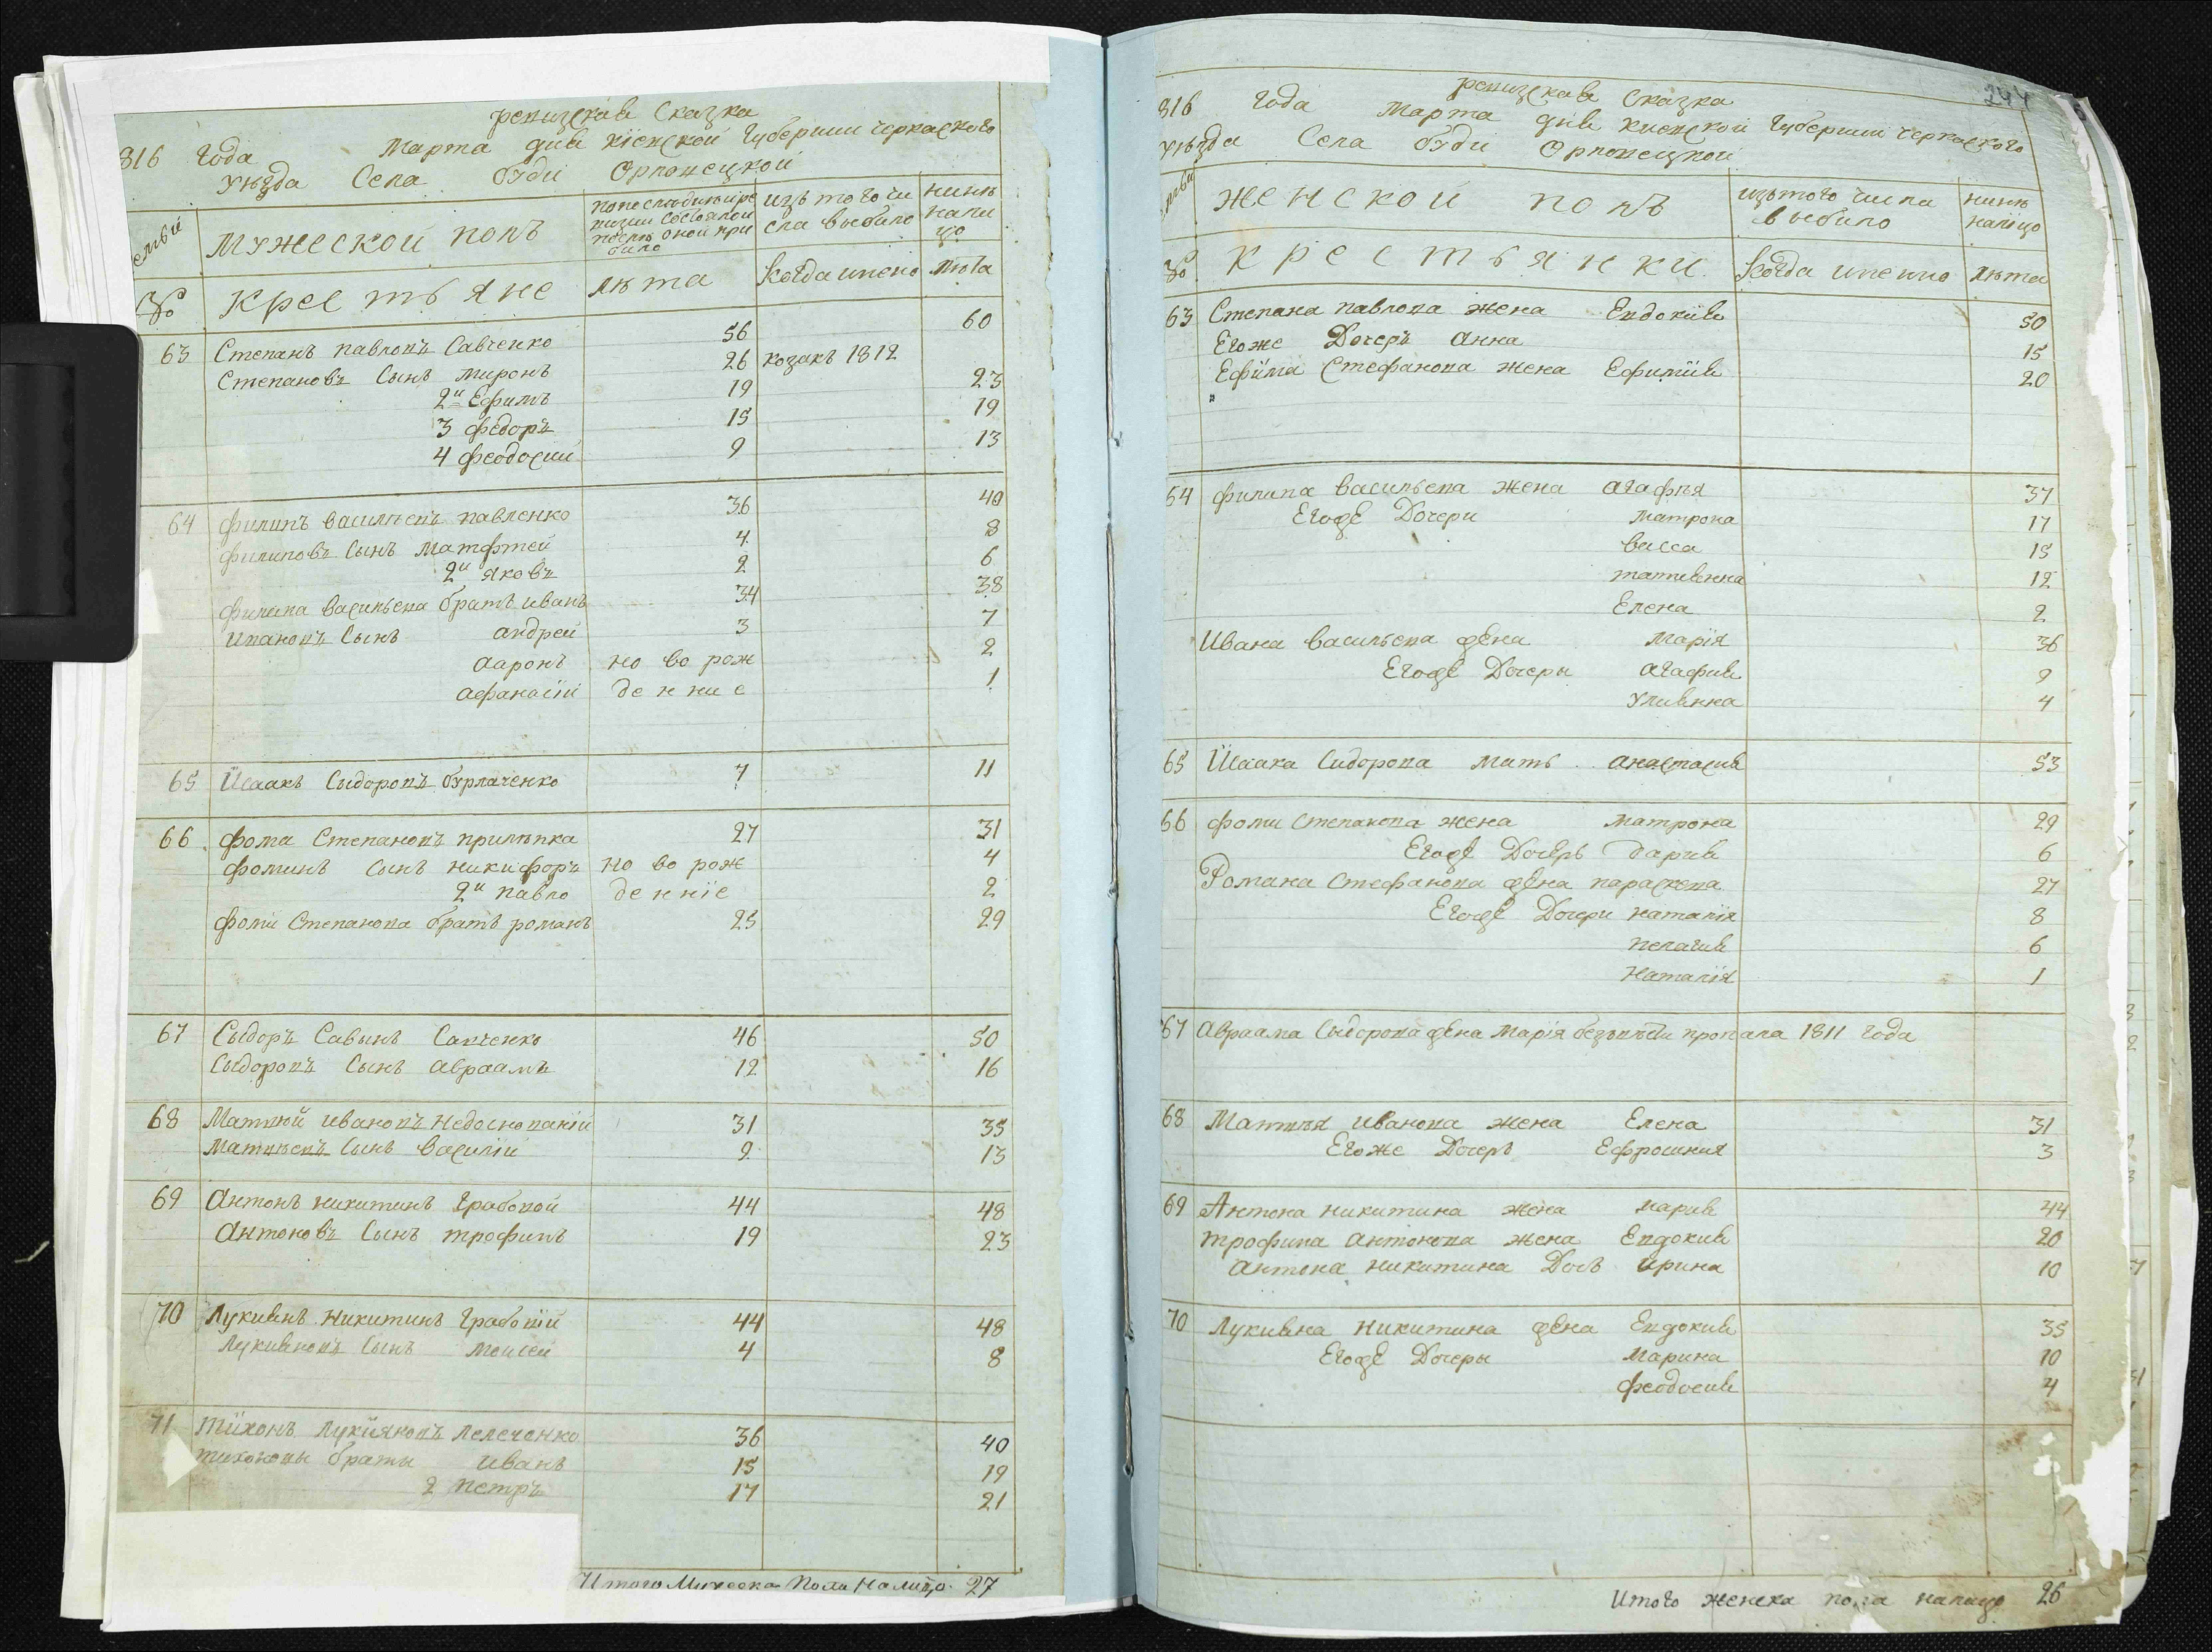 ревизская Сказка
816 Года Марта дня Кіевской Губернии Черкаского
уезда Села Буди Орловецкой
мужеской полъ
изъ того чи
сла выбыло
нинѣ
нали
цо
№ Крестьяне лѣта когда имено лѣта
63 Степанъ павловъ Савченко 56 60
Степановъ Сынъ миронъ 26 козакъ 1812
2й Ефимъ 19 23
3 федоръ 15 19
4 феодосий 9 13
64 филипъ васильевъ павленко 36 40
филиповъ Сынъ Матфтей 4 8
2й яковъ 2 6
филипа васильева братъ иванъ 34 38
ивановъ Сынъ андрей 3 7
ааронъ но во рож 2
афанасїй де н ни е 1
65 Исаакъ Сыдоровъ бурлаченко 7 11
66 фома Степановъ прилѣпка 27 31
фоминъ Сынъ никифоръ но во рож 4
2й павло де н нїе 2
фоми Степанова братъ романъ 25 29
67 Сыдоръ Савынъ Савченко 46 50
Сыдоровъ Сынъ авраамъ 12 16
68 Матвѣй ивановъ Недосновапій 31 35
Матвѣевъ Сынъ василий 9 13
69 Антонъ никитинъ Грабовой 44 48
Антоновъ Сынъ трофимъ 19 23
70 Лукиянъ Никитинъ Грабовїй 44 48
Лукияновъ Сынъ моисей 4 8
71 Тихонъ Лукїяновъ Лелеченко 36 40
тихоновы браты иванъ 15 19
2 петръ 17 21
Итого Мужеска Пола Налицо 27
244
ревизская Сказка
816 Года Марта дня киевской Губернии черкаского
уезда Села буди Орловецкой
женской полъ
изътого числа
выбыло
нинѣ
налицо
№ Крестьянки когда именно лѣта
63 Степана павлова жена Евдокия 50
Егоже Дочерь Анна 15
Ефима Стефанова жена Ефимїя 20
64 филипа васильева жена агафѣя 37
Егоже Дочери матрона 17
васса 15
татиянна 12
Елена 2
Ивана васильева жена марїя 36
Егоже Дочеры агафия 9
улиянна 4
65 Исаака Сидорова мать анастасия 53
66 фоми Степанова жена матрона 29
Егоже Дочерь дария 6
Романа Стефанова жена параскева 27
Егоже Дочери наталїя 8
пелагия 6
Наталїя 1
67 авраама Сыдорова жена марїя безъвѣсти пропала 1811 года
68 Матвѣя иванова жена Елена 31
Егоже Дочерь Ефросиния 3
69 Антона никитина жена мария 44
трофима антонова жена Евдокия 20
антона никитина Дочь ирина 10
70 Лукияна никитина жена Евдокия 35
Егоже Дочеры марина 10
феодосия 4
Итого женска пола налицо 26